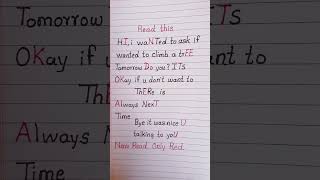 Read this
HI, i waNTed to ask if
wanted to climb a toEE
Tomorrow Do you? ITs
OKay if u don't want to
ThERe is
Always NexT
Time
Bye it was nice U
talking to yoU
Now Read Only Red.
Tomorrow
OKay if u
Always
Time
TS
to
U